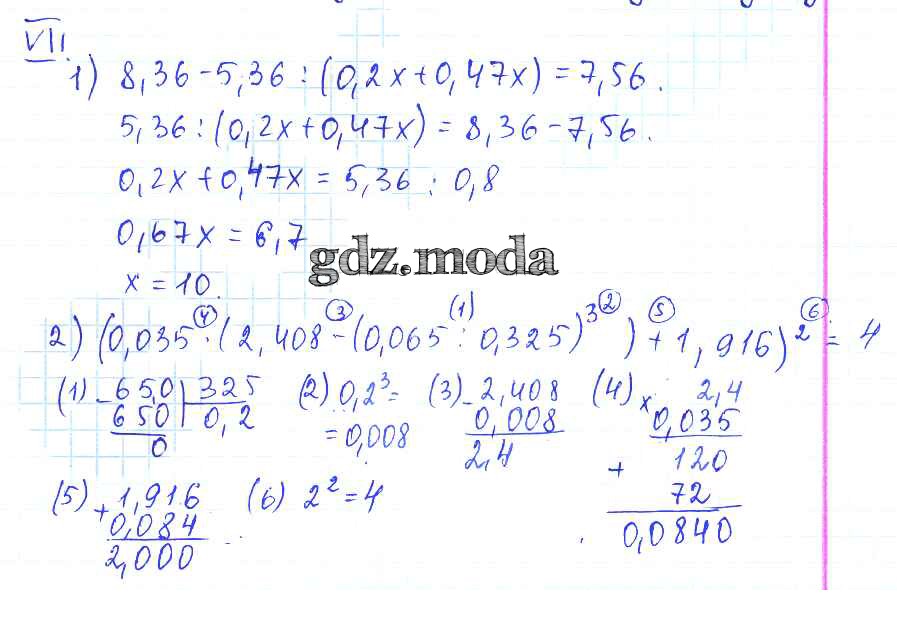 VII.
1) 8,36 – 5,36 : (0,2x + 0,47x) = 7,56.
5,36 : (0,2x + 0,47x) = 8,36 – 7,56.
0,2x + 0,47x = 5,36 : 0,8
0,67x = 6,7
x = 10.
gdz.moda
(1) (2) (3) (4) (5) (6)
2) (0,035 · (2,408 – (0,065 : 0,325)³) + 1,916)² = 4
(1) – 65,0 | 325 (2) 0,2³ = (3) – 2,408 (4) × 2,4
650 0,2 = 0,008 0,008 0,035
0 2,4 + 120
72
0,0840
(5) + 1,916 (6) 2² = 4
0,084
2,000